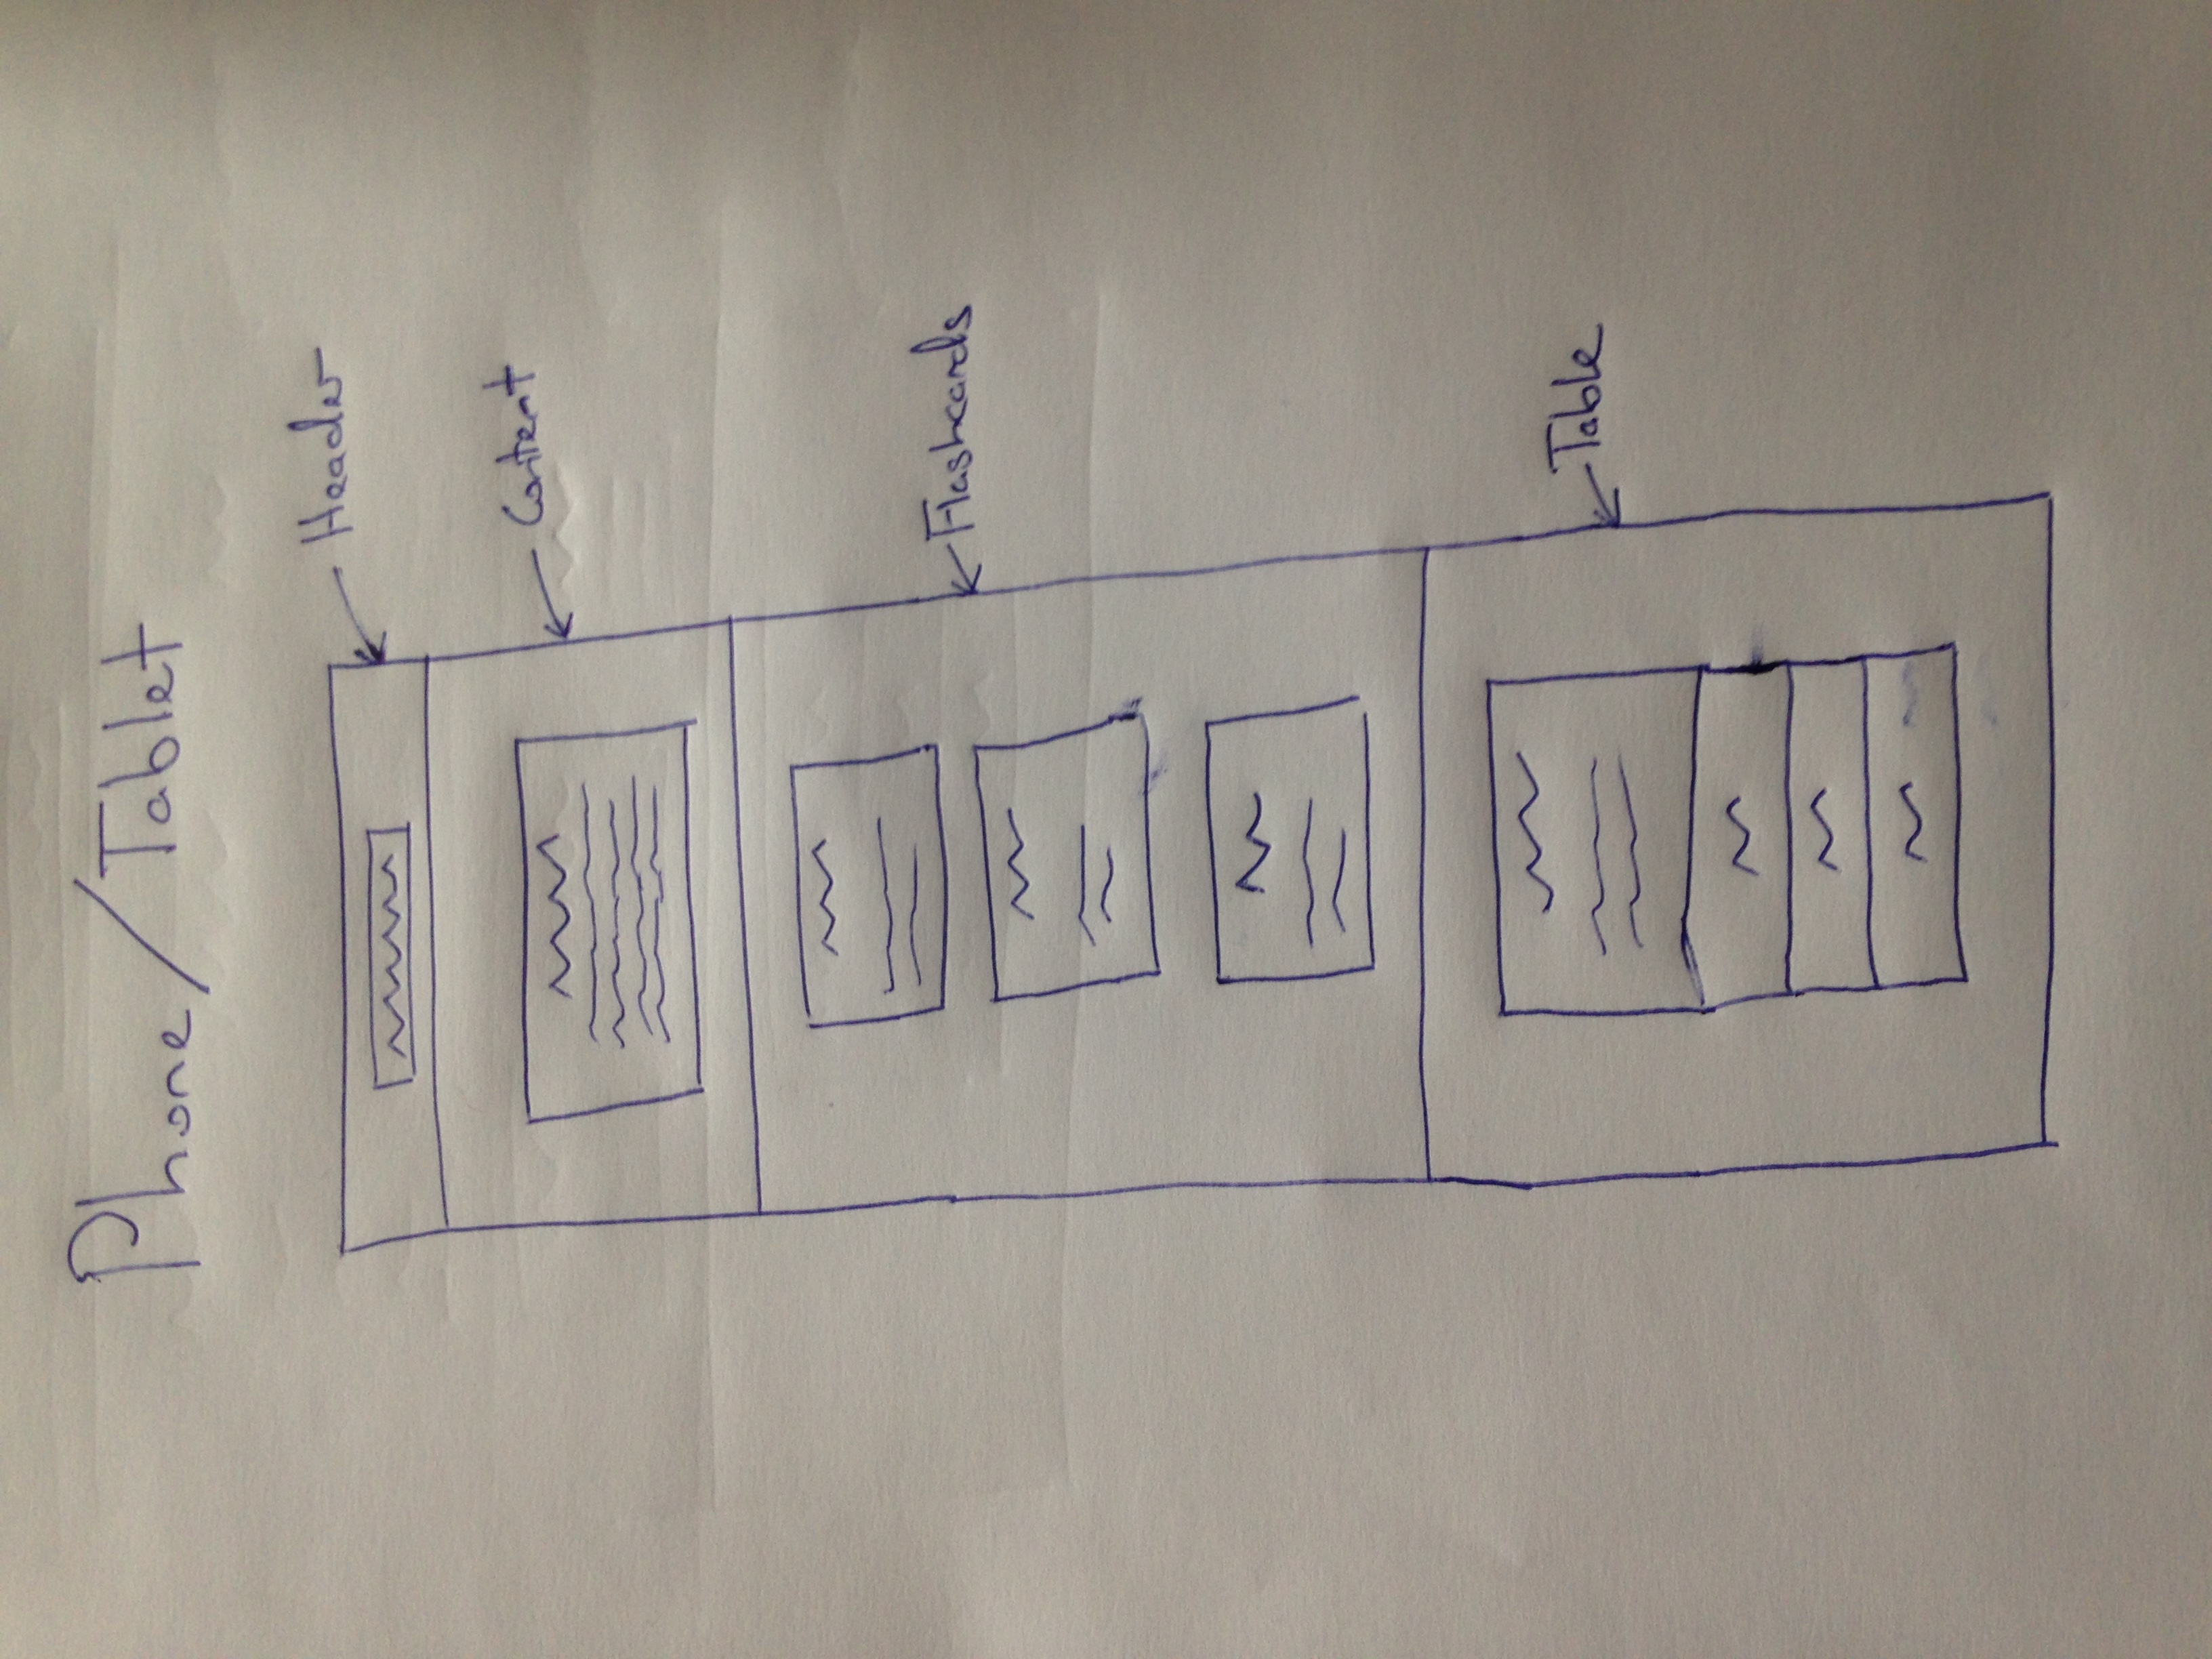 Phone/Tablet
Header
Content
Flashcards
Table